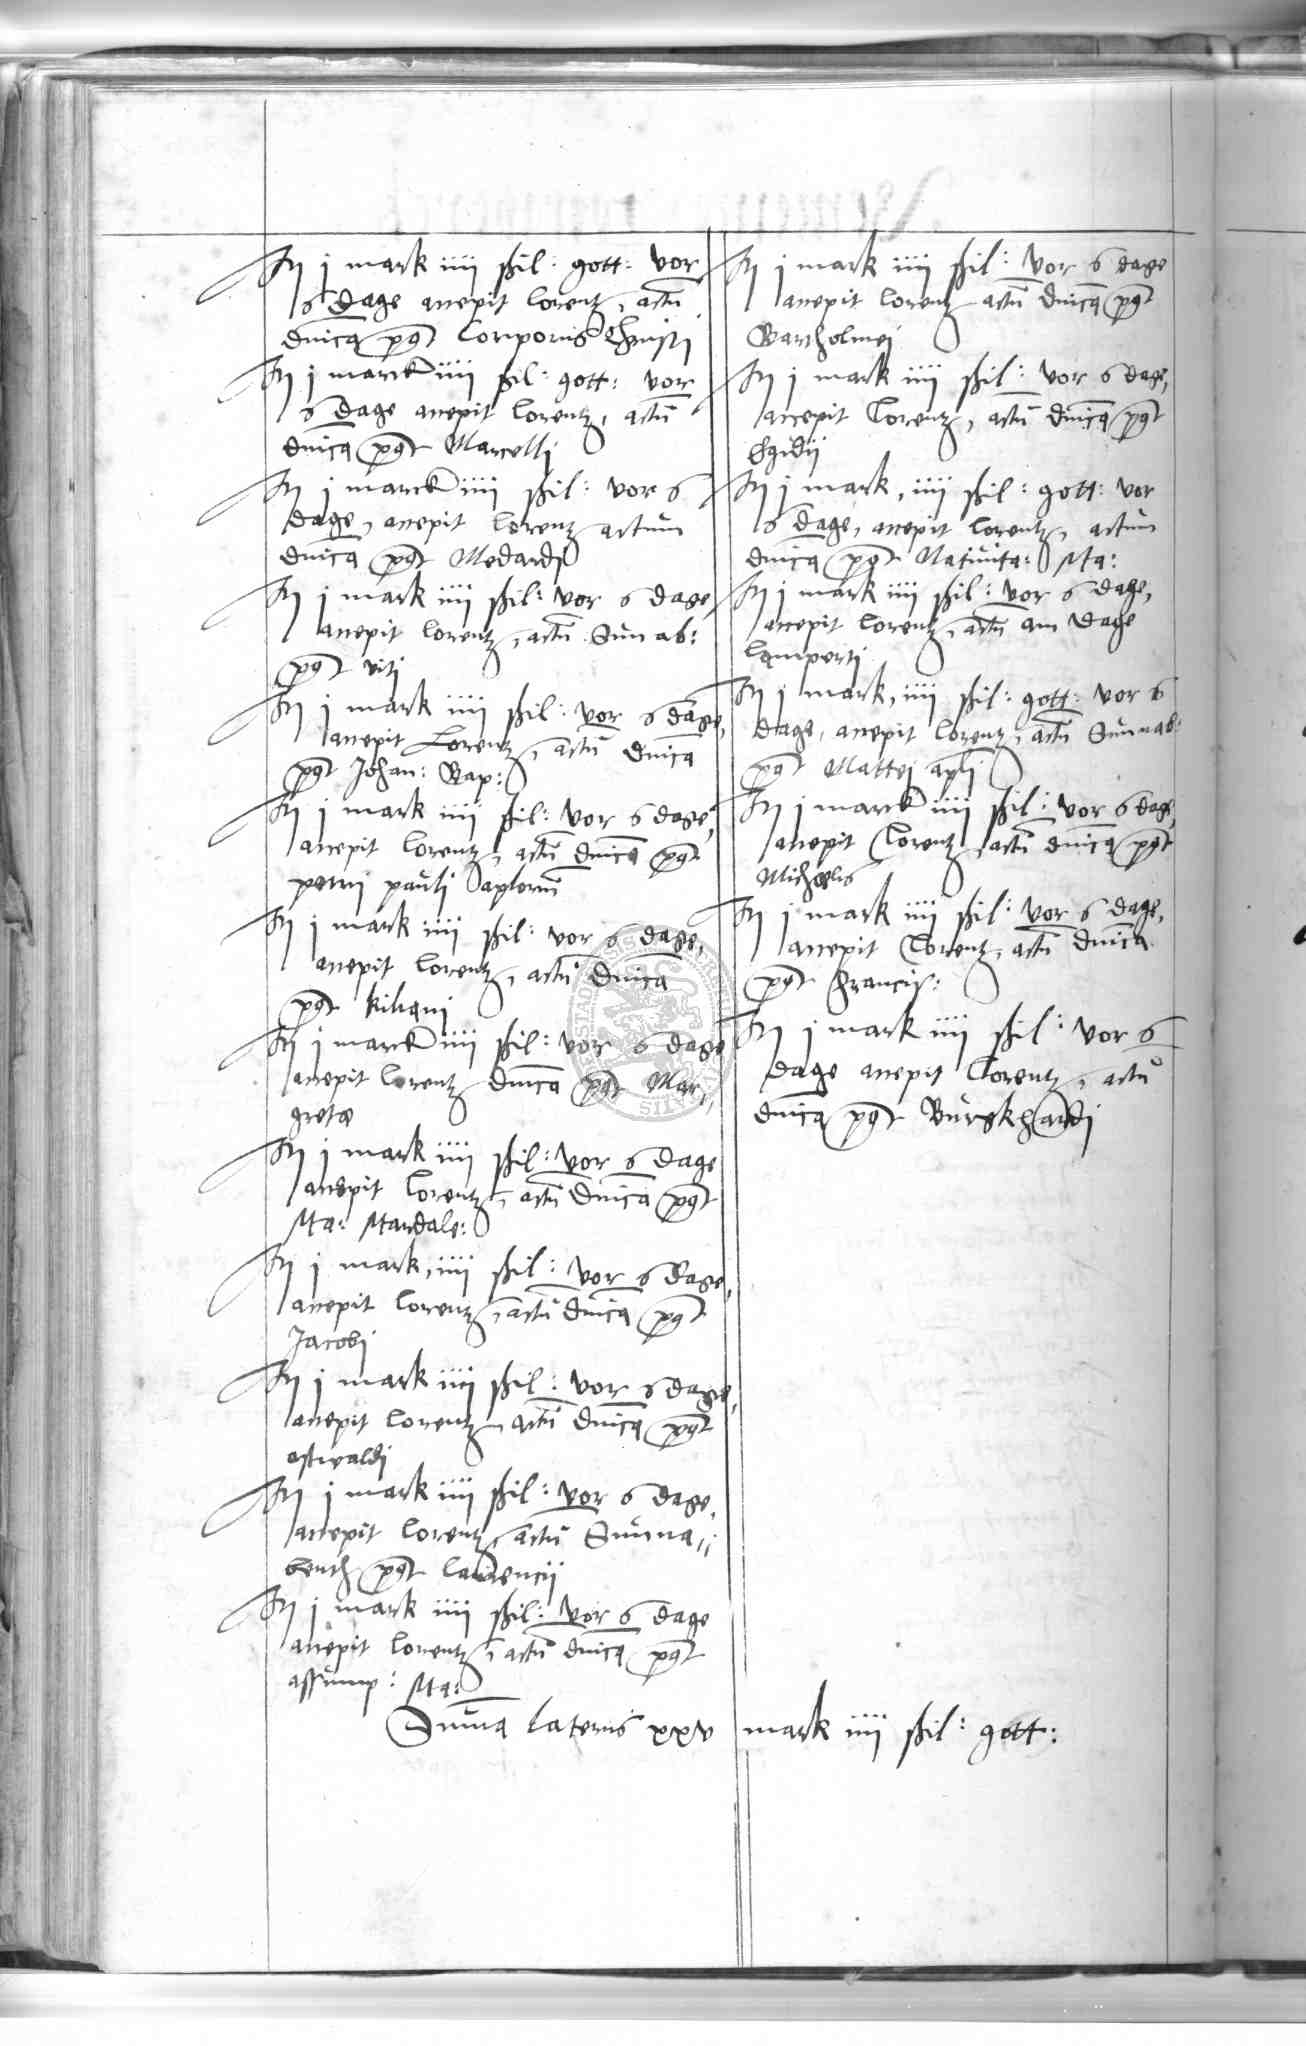 It j mark iiij ßil: gott: vor
6 dage accepit Lorentz, actū
dnica pꝰt Corporis Christi
It j marck iiij ßil: gott: vor
6 dage accepit Lorentz, actū
dnica pꝰt Marcelli
It j marck iiij ßil: vor 6
dage, accepit Lorentz actum
dnica pꝰt Medardj
It j mark iiij ßil: vor 6 dage
accepit Lorentz, actū Sunab:
pꝰt viti
It j mark iiij ßil: vor 6 dage,
accepit Lorentz, actū dnica
pꝰt Johan: Bap:
It j mark iiij ßil: vor 6 dage,
accepit Lorentz, actū dnica pꝰt
petrij paulj aplorū
It j mark iiij ßil: vor 6 dage,
accepit Lorentz, actū dnica
pꝰt kilianj
It j marck iiij ßil: vor 6 dage
accepit Lorentz dnica pꝰt Mar,,
gretæ
It j mark iiij ßil: vor 6 dage
accepit Lorentz, actū dnica pꝰt
Ma: Mardale:
It j mark, iiij ßil: vor 6 dage,
accepit Lorentz, actū dnica pꝰt
Jacobj
It j mark iiij ßil: vor 6 dage,
accepit Lorentz, actū dnica pꝰt
ostwaldj
It j mark iiij ßil: vor 6 dage,
accepit Lorentz, actū Sunna,,
benth pꝰt Laurencij
It j mark iiij ßil: vor 6 dage
accepit Lorentz, actū dnica pꝰt
assump: Ma:
It j mark iiij ßil: vor 6 dage
accepit Lorentz actū dnica pꝰt
Bartholmej
It j mark iiij ßil: vor 6 dage,
accepit Lorentz, actū dnica pꝰt
Egidij
It j mark, iiij ßil: gott: vor
6 dage, accepit Lorentz, actum
dnica pꝰt Natiuita: Ma:
It j mark iiij ßil: vor 6 dage,
accepit Lorentz, actū am dage
Lampertj
It j mark, iiij ßil: gott: vor 6
dage, accepit Lorentz, actū Sunnab:
pꝰt Mattej apli
It j marck iiij ßil: vor 6 dage,
accepit Lorentz, actū dnica pꝰt
Michælis
It j mark iiij ßil: vor 6 dage,
accepit Lorentz, actū dnica
pꝰt Francis:
It j mark iiij ßil: vor 6
dage accepit Lorentz, actū
dnica pꝰt Burgkhardj
Suma lateris xxv mark iiij ßil: gott: